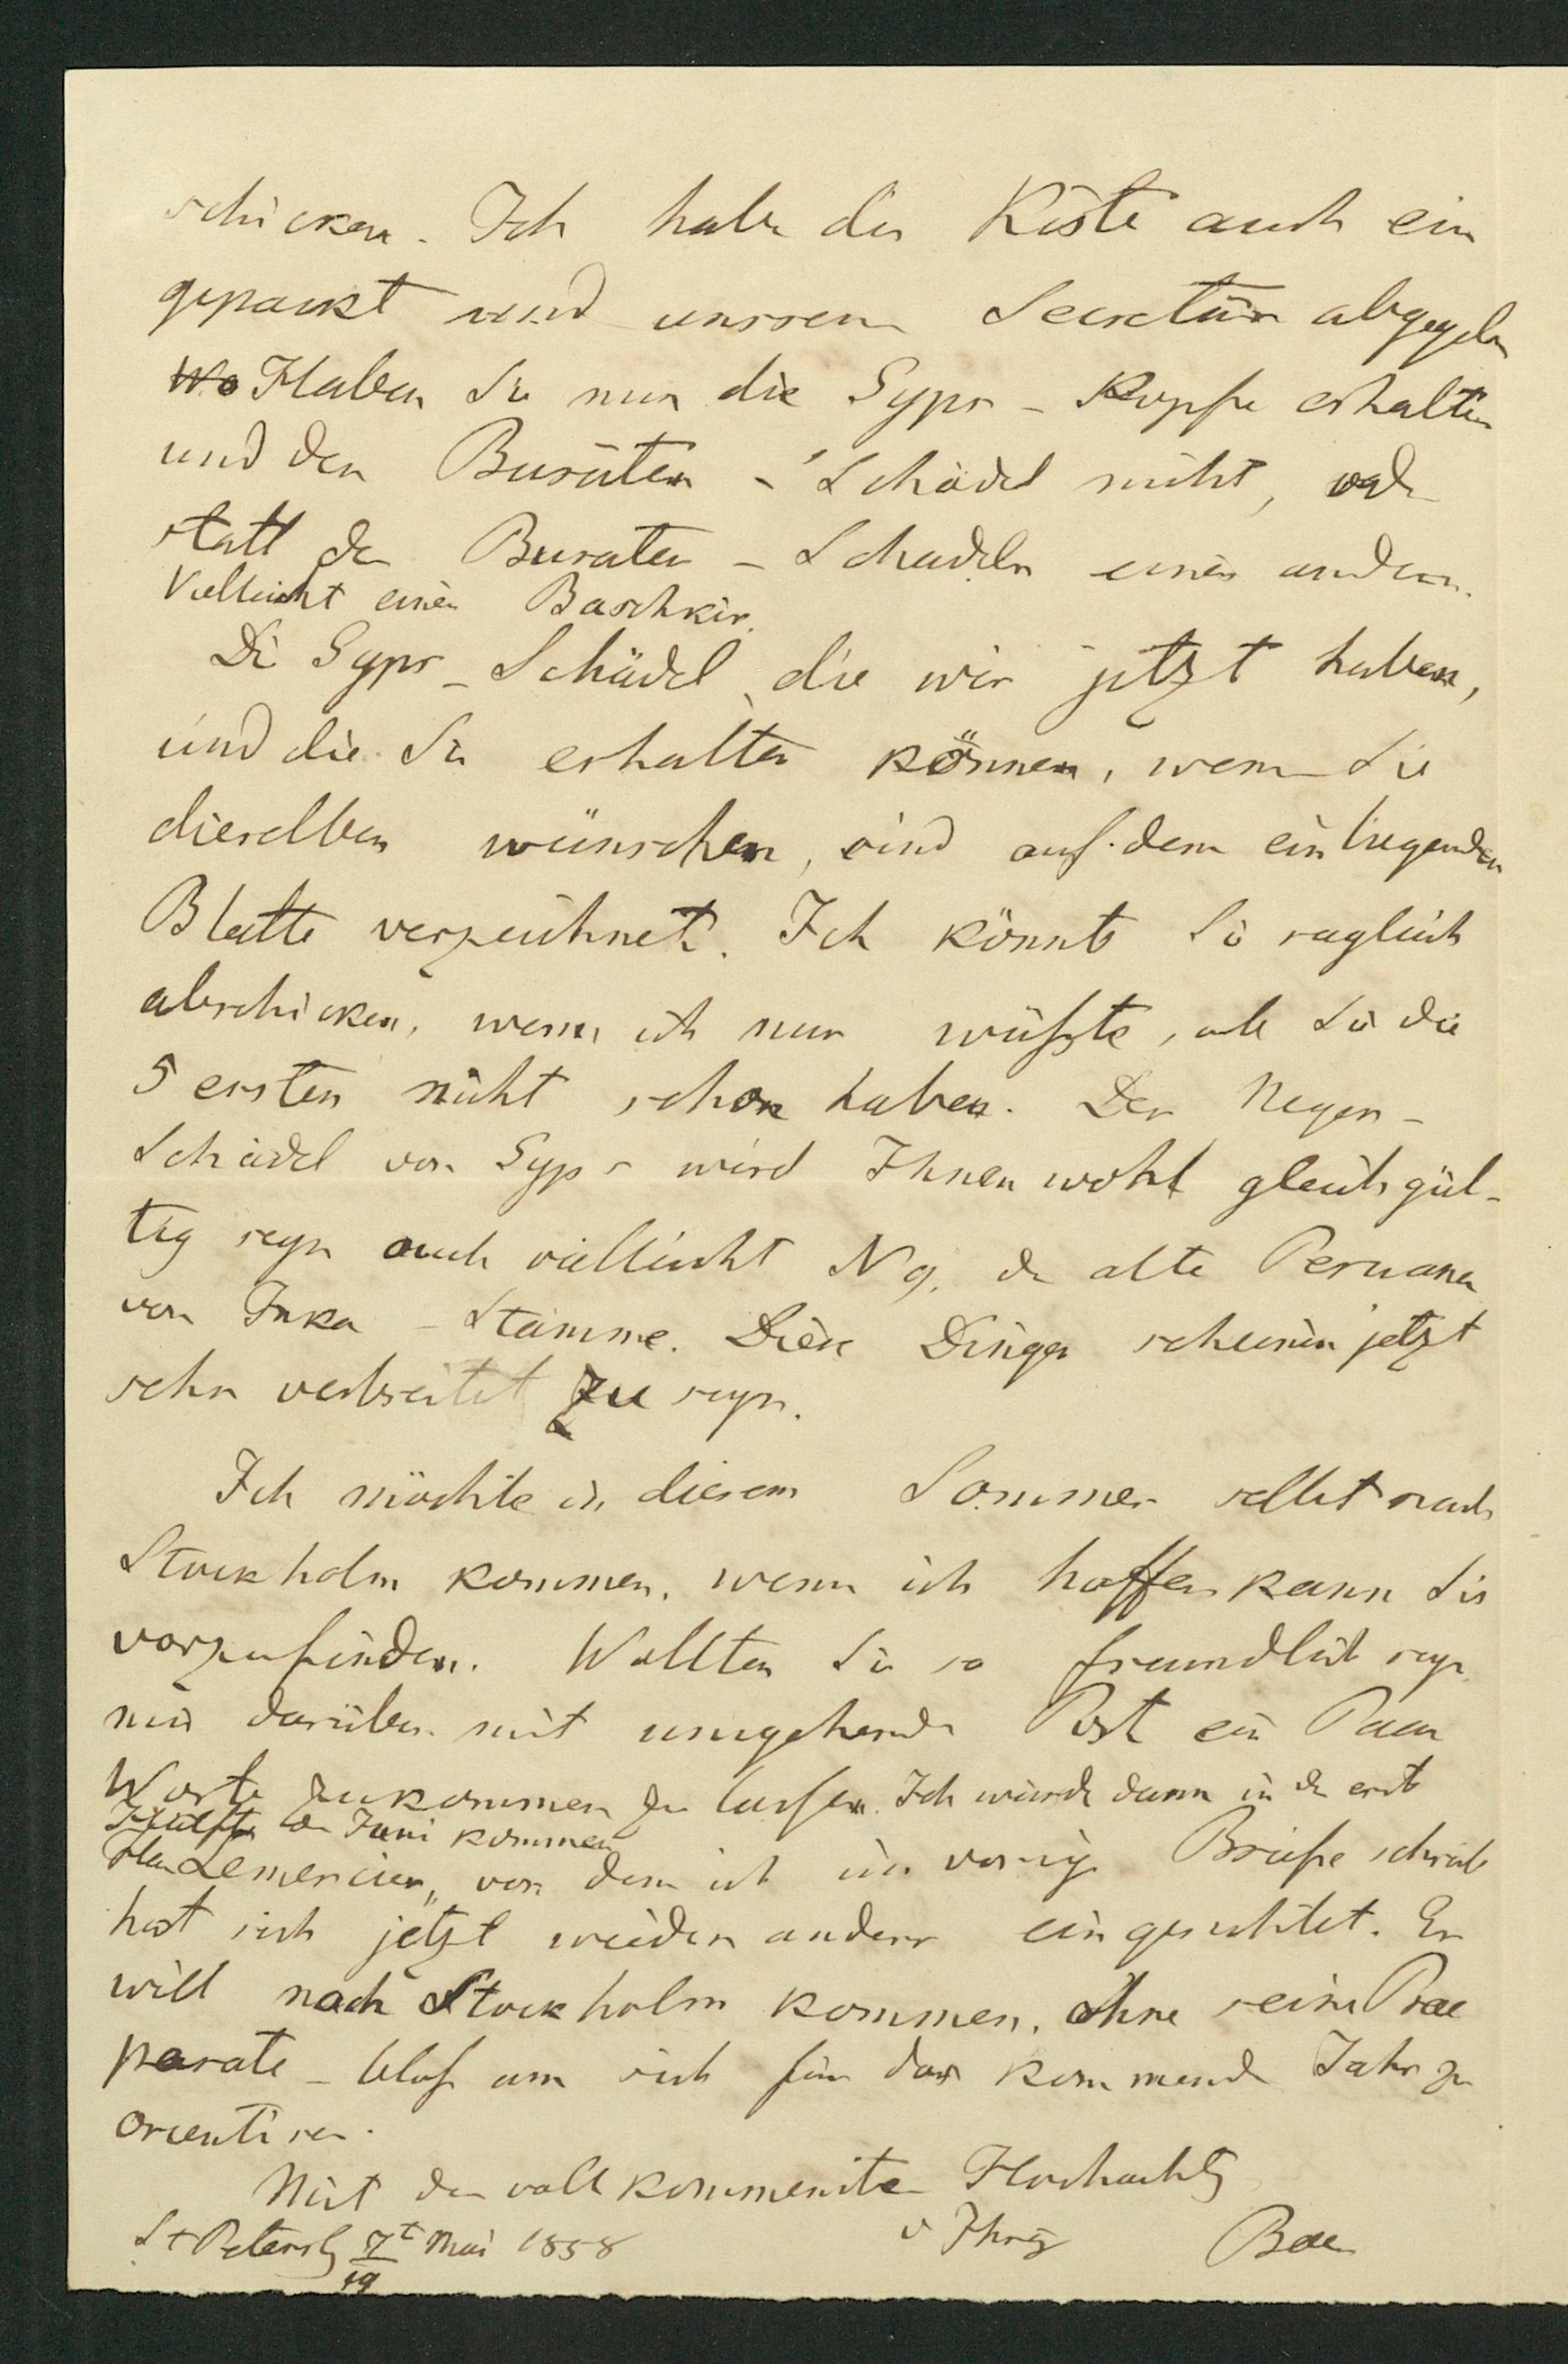 schicken. Ich habe die Kiste auch ein
gepackt und unsrem Secretär abgegeben
Wo Haben Sie nun die Gyps-Köpfe erhalten
und den Buräten-Schädel nicht, oder
statt des Buraten-Schadels einen andern.
Vielleicht einen Baschkir.
Die Gyps-Schädel, die wir jetzt haben,
und die Sie erhalten können, wenn Sie
dieselben wünschen, sind auf dem einliegenden
Blatte verzeichnet. Ich könnte Sie sogleich
abschicken, wenn ich nur wüßte, ob Sie die
5 ersten nicht schon haben. Der Neger-
Schädel von Gyps wird Ihnen wohl gleichgül-
tig seyn auch vielleicht N 9. der alte Peruaner
von Inka-Stamme. Diese Dinger scheinen jetzt
sehr verbreitet zu seyn.
Ich möchte in diesem Sommer selbst nach
Stockholm kommen, wenn ich hoffen kann Sie
vorzufinden. Wollten Sie so freundlich seyn
mir darüber mit umgehender Post ein Paar
Worte zukommen zu lassen. Ich würde dann in der erste
Hälfte des Juni kommen
Herr Lemercier, von dem ich im vorigen Briefe schrieb
hat sich jetzt wieder anders eingerichtet. Er
will nach Stockholm kommen, ohne seine Prae
parate - bloß um sich für das kommende Jahr zu
orientiren.
Mit der vollkommensten Hochachtg
v Ihrig Baer
St Petersb 7t/19 Mai 1858